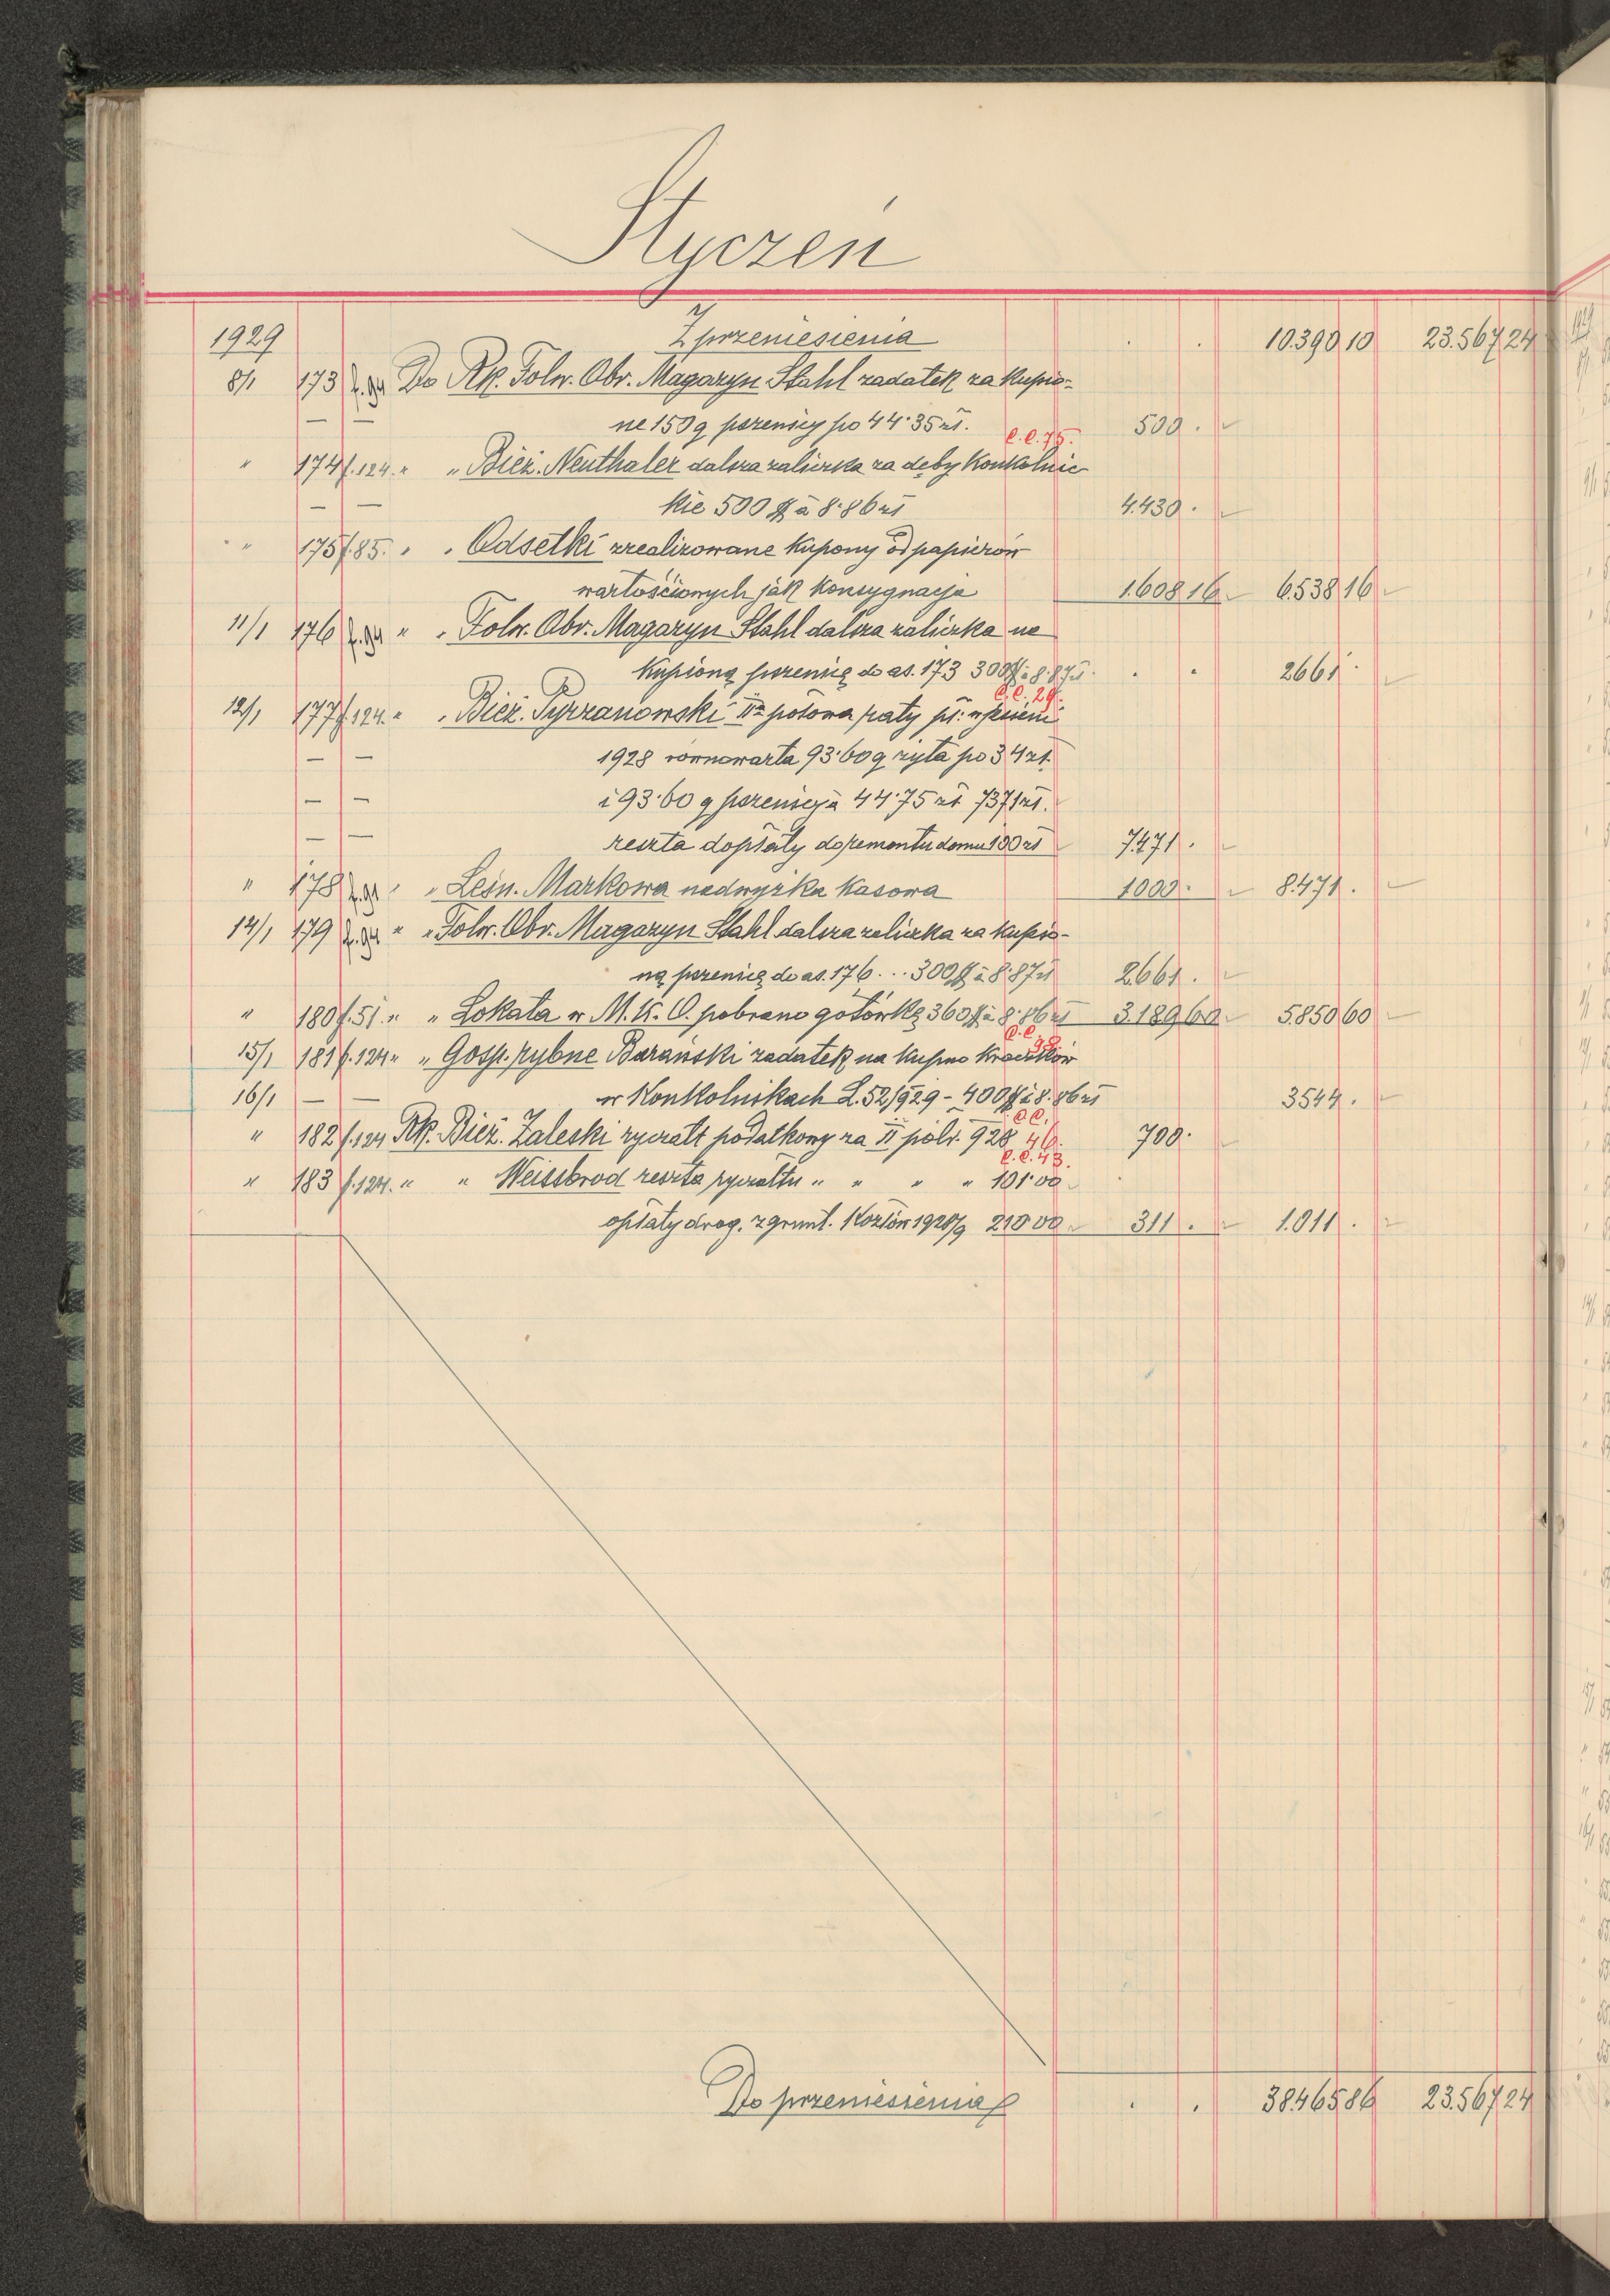 Styczeń
1929 Z przeniesienia . . 10.390 10 23.567 24
8/1 173 f. 94 Do Rk. Folw. Obr. Magazyn Stahl zadatek za kupio-
— — ne 150 q pszenicy po 44·35 zł. 500 .
C.C. 75.
" 174 f. 124. " " Bież. Neuthaler dalsza zaliczka za dęby Konkolnic-
— — kie 500 $ à 8·86 zł 4.430 .
" 175 f. 85. " " Odsetki zrealizowane kupony od papierów
wartościowych jak konsygnacja 1.608 16 6.538 16
11/1 176 f. 94 " " Folw. Obr. Magazyn Stahl dalsza zaliczka na
kupioną pszenicę do as. 173 300 $ à 8.87 zł . . 2661 .
C.C. 29.
12/1 177 f. 124. " " Bież. Pyrzanowski IIa połowa raty pł: w jesieni
— — 1928 równowarta 93·60 q żyta po 34 zł.
— — i 93·60 q pszenicy à 44·75 zł 7371 zł.
— — reszta dopłaty do remontu domu 100 zł 7.471 .
" 178 f. 91 " " Leśn. Markowa nadwyżka kasowa 1000 . 8.471 .
14/1 179 f. 94 " " Folw. Obr. Magazyn Stahl dalsza zaliczka za kupio-
ną pszenicę do as. 176 ... 300 $ à 8·87 zł 2.661 .
" 180 f. 51. " " Lokata w M. K. O. pobrano gotówkę 360 $ à 8·86 zł 3.189 60 5.850 60
C.C. 98.
15/1 181 f. 124 " " Gosp. rybne Barański zadatek na kupno kroczków
16/1 — — w Konkolnikach L. 52/929 - 400 $ à 8.86 zł 3544 .
C.C. 46.
" 182 f. 124 Rk. Bież. Zaleski ryczałt podatkowy za II półr. 928 700 .
C.C. 43.
" 183 f. 124. " " Weissbrod reszta ryczałtu " " " " 101·00
opłaty drog. z grunt. Kozłów 1928/9 210·00 311 . 1.011 .
Do przeniesienia . . 38.465 86 23.567 24